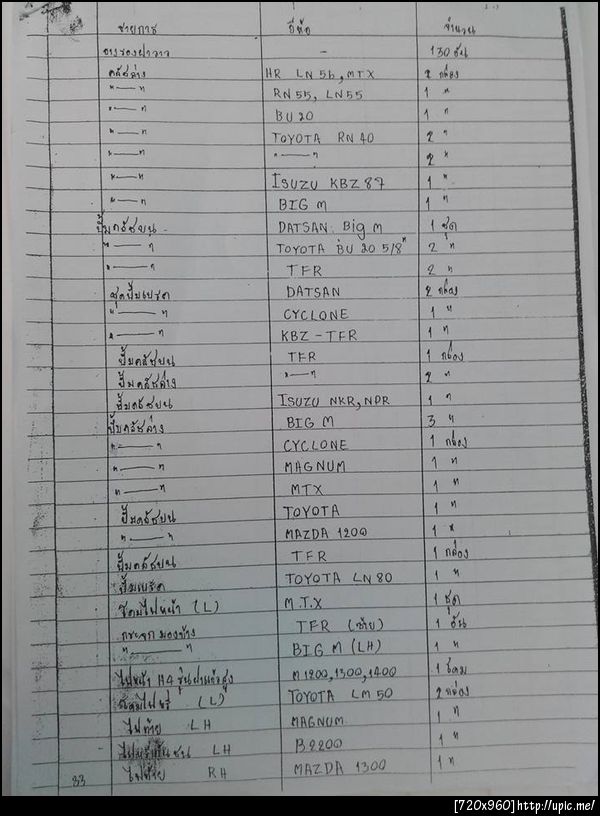 รายการ ยี่ห้อ จำนวน
ยางรองฝาวาว - 130 อัน
คลัชล่าง HR LN 56, MTX 2 กล่อง
"—" RN 55, LN 55 1 "
"—" BU 20 1 "
"—" TOYOTA RN 40 2 "
"—" "—" 2 "
"—" ISUZU KBZ 87 1 "
"—" BIG M 1 "
ปั้มคลัชบน DATSAN Big M 1 ชุด
"—" TOYOTA BU 20 5/8" 2 "
"—" TFR 2 "
ชุดปั้มเบรค DATSAN 2 กล่อง
"—" CYCLONE 1 "
"—" KBZ - TFR 1 "
ปั้มคลัชบน TFR 1 กล่อง
ปั้มคลัชล่าง "—" 2 "
ปั้มคลัชบน ISUZU NKR, NPR 1 "
ปั้มคลัชล่าง BIG M 3 "
"—" CYCLONE 1 กล่อง
"—" MAGNUM 1 "
"—" MTX 1 "
ปั้มคลัชบน TOYOTA 1 "
"—" MAZDA 1200 1 "
ปั้มคลัชบน TFR 1 กล่อง
ปั้มเบรค TOYOTA LN 80 1 "
โคมไฟหน้า (L) M.T.X 1 ชุด
กระจกมองข้าง TFR (ซ้าย) 1 อัน
"—" BIG M (LH) 1 "
ไฟหน้า H4 M 1200, 1300, 1400 1 โคม
โคมไฟหรี่ (L) TOYOTA LM 50 2 กล่อง
ไฟท้าย LH MAGNUM 1 "
ชน LH B2200 1 "
33 ไฟท้าย RH MAZDA 1300 1 "
[720x960] http://upic.me/